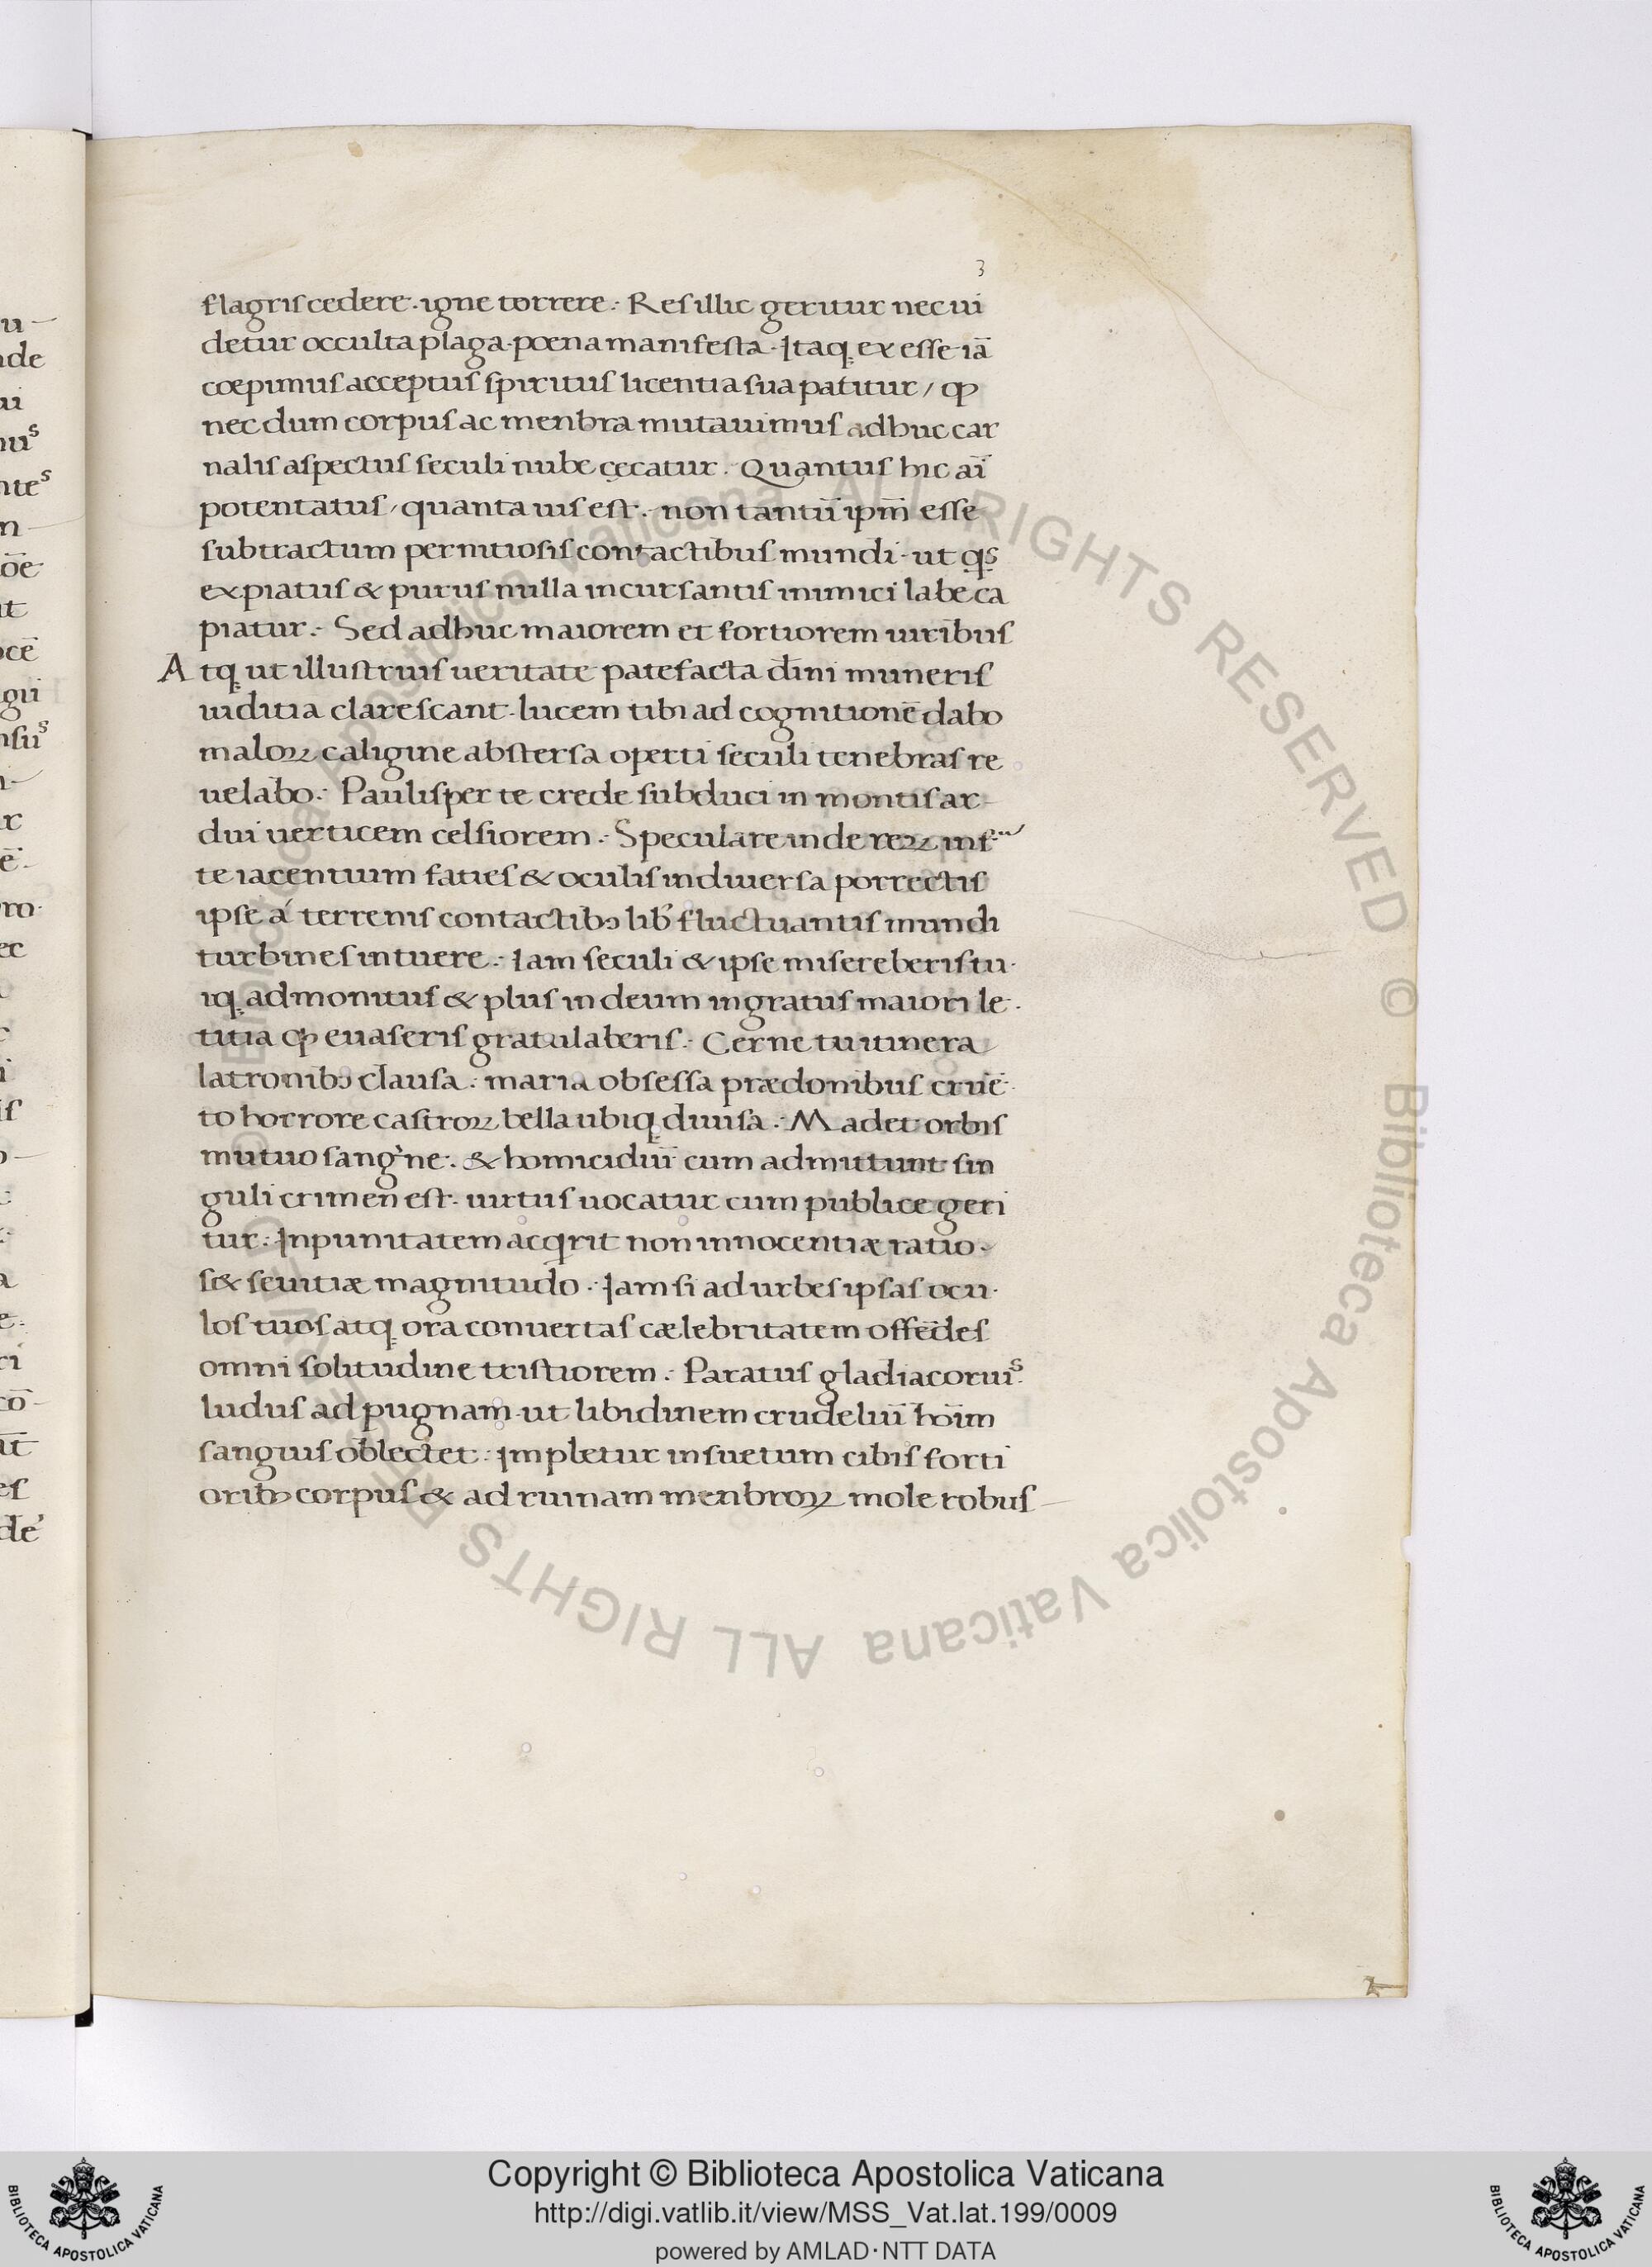 3
flagris cedere · igne torrere ·: Res illic geritur nec ui
detur occulta plaga · poena manifesta · Itaqꝫ ex esse iā
coepimus acceptus spiritus licentia sua patitur / ꝙ
nec dum corpus ac menbra mutauimus adhuc car
nalis aspectus seculi nube cęcatur ·: Quantus hic aī
potentatus / quanta uis est ·: non tantū ipm̄ esse
subtractum pernitiosis contactibus mundi · ut qs
expiatus & purus nulla incursantis inimici labe ca
piatur ·: Sed adhuc maiorem et fortiorem uiribus
Atqꝫ ut illustrius ueritate patefacta diī̄ni muneris
iuditia clarescant · lucem tibi ad cognitionē dabo
maloꝝ caligine abstersa operti seculi tenebras re
uelabo ·: Paulisper te crede subduci in montis ar-
dui uerticem celsiorem ·: Speculare inde reꝝ inf͛
te iacentium faties & oculis in diuersa porrectis
ipse á terrenis contactibꝰ lib̛ fluctuantis mundi
turbines intuere ·: Iam seculi & ipse misereberis tu·
iqꝫ admonitus & plus in deum ingratus maiori le·
titia ꝙ euaseris gratulaberis ·: Cerne tu itinera
latronibꝰ clausa ·: maria obsessa prædonibus cruē·
to horrore castroꝝ bella ubiqꝫ diuisa ·: Madet orbis
mutuo sangⁱne · & homicidiū cum admittunt sin
guli crimen est · uirtus uocatur cum publice geri
tur ·: Inpunitatem acqͥrit non innocentiæ ratio ·
s& seuitiæ magnitudo ·: Iam si ad urbes ipsas ocu·
los tuos atqꝫ ora conuertas cælebritatem offēdes
omni solitudine tristiorem ·: Paratus gladiacoriuˢ·
ludus ad pugnam · ut libidinem crudeliū hoīm
sanguis oblectet ·: Impletur in suetum cibis forti
oribꝰ corpus & ad ruinam menbroꝝ mole robus-
Copyright © Biblioteca Apostolica Vaticana
http://digi.vatlib.it/view/MSS_Vat.lat.199/0009
powered by AMLAD·NTT DATA
BIBLIOTECA APOSTOLICA VATICANA
BIBLIOTECA APOSTOLICA VATICANA